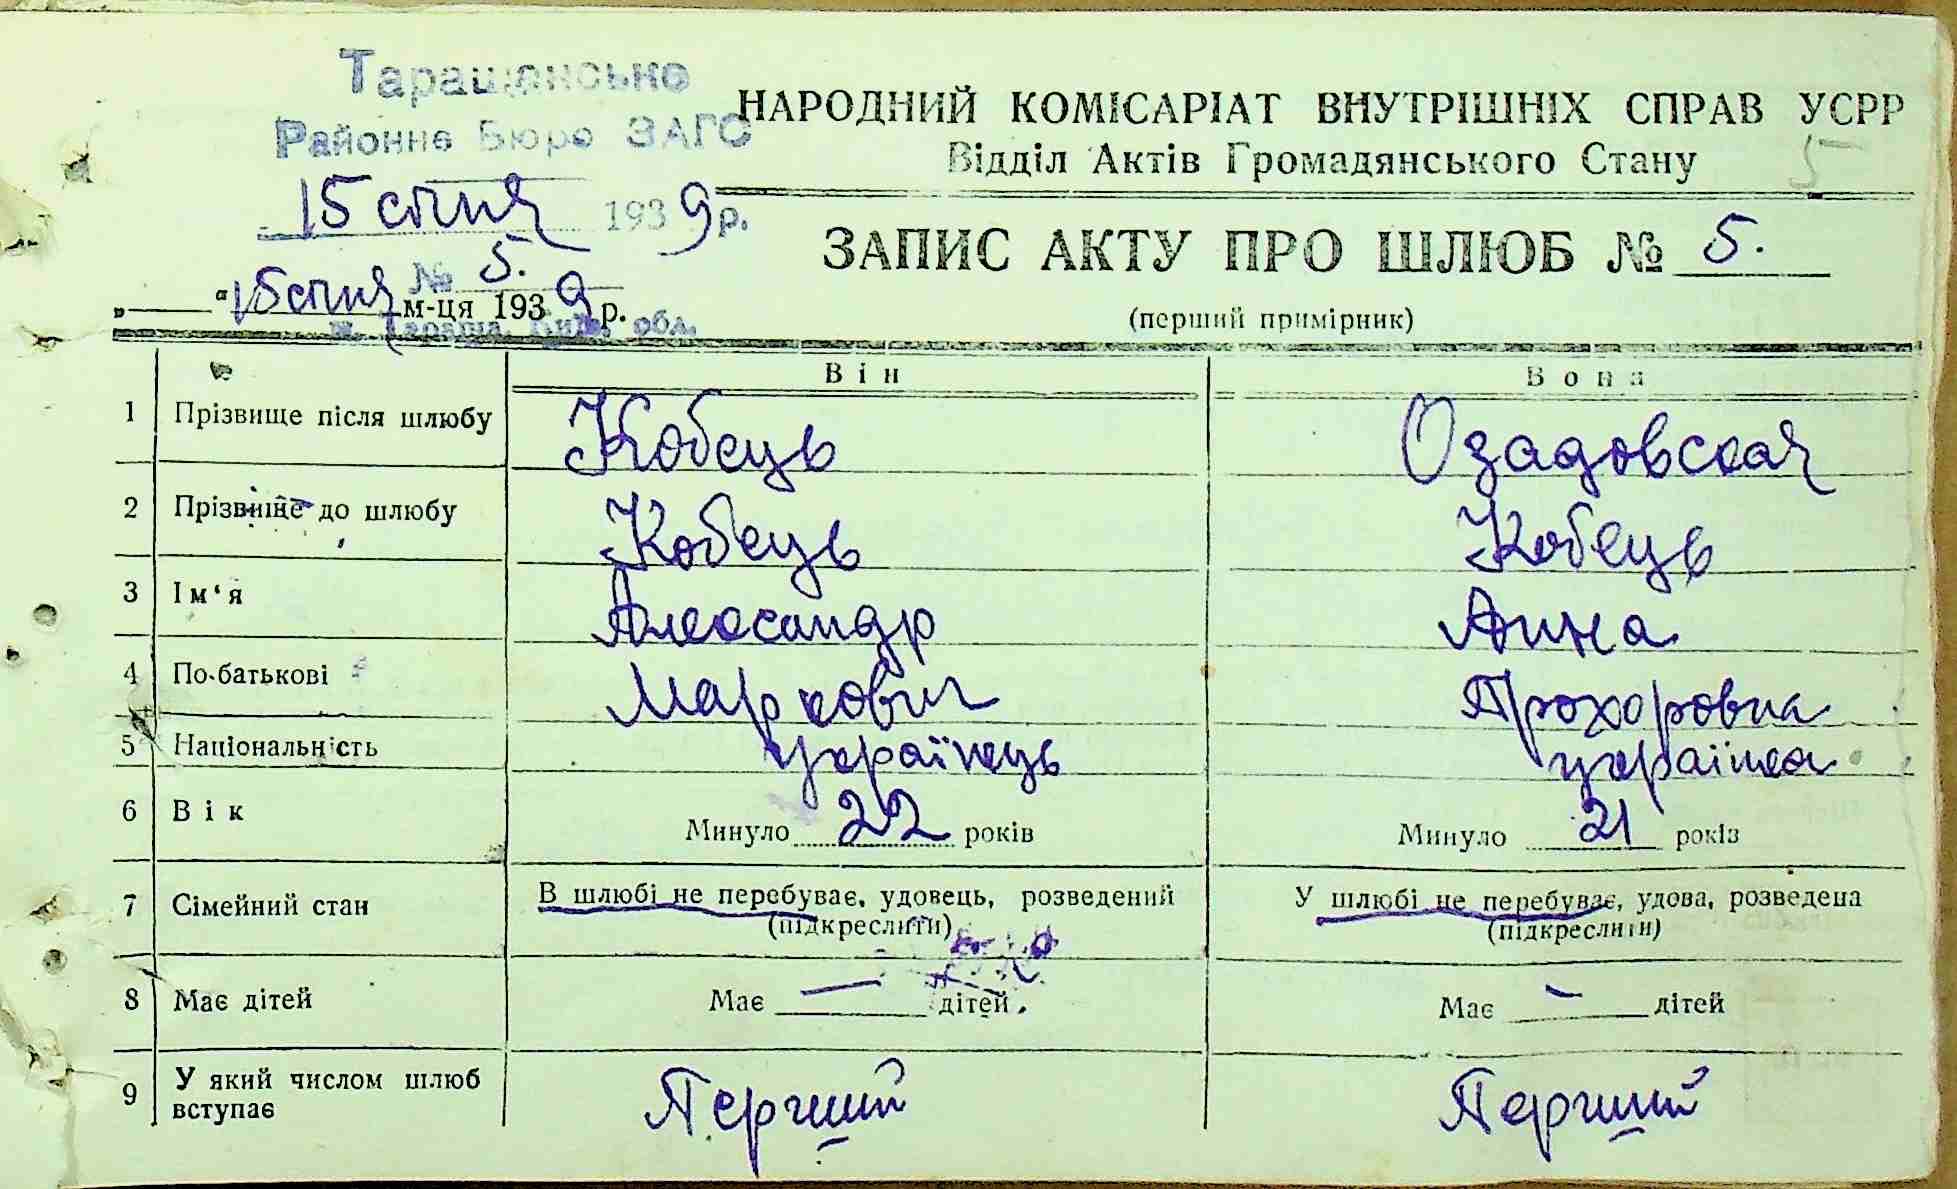 Таращанське
Районне Бюро ЗАГС
15 січня 1939 р.
№ 5.
"15 січня м-ця 1939 р.
м. Тараща, Київ. обл.
НАРОДНИЙ КОМІСАРІАТ ВНУТРІШНІХ СПРАВ УСРР
Відділ Актів Громадянського Стану
5
ЗАПИС АКТУ ПРО ШЛЮБ № 5.
(перший примірник)
Він Вона
1 Прізвище після шлюбу Кобець Озадовская
2 Прізвище до шлюбу Кобець Кобець
3 Ім'я Александр Анна
4 По-батькові Маркович Прохоровна
5 Національність українець українка
6 Вік Минуло 22 років Минуло 21 років
7 Сімейний стан В шлюбі не перебуває, удовець, розведений У шлюбі не перебуває, удова, розведена
(підкреслити) (підкреслити)
8 Має дітей Має — дітей Має — дітей
9 У який числом шлюб вступає Перший Перший